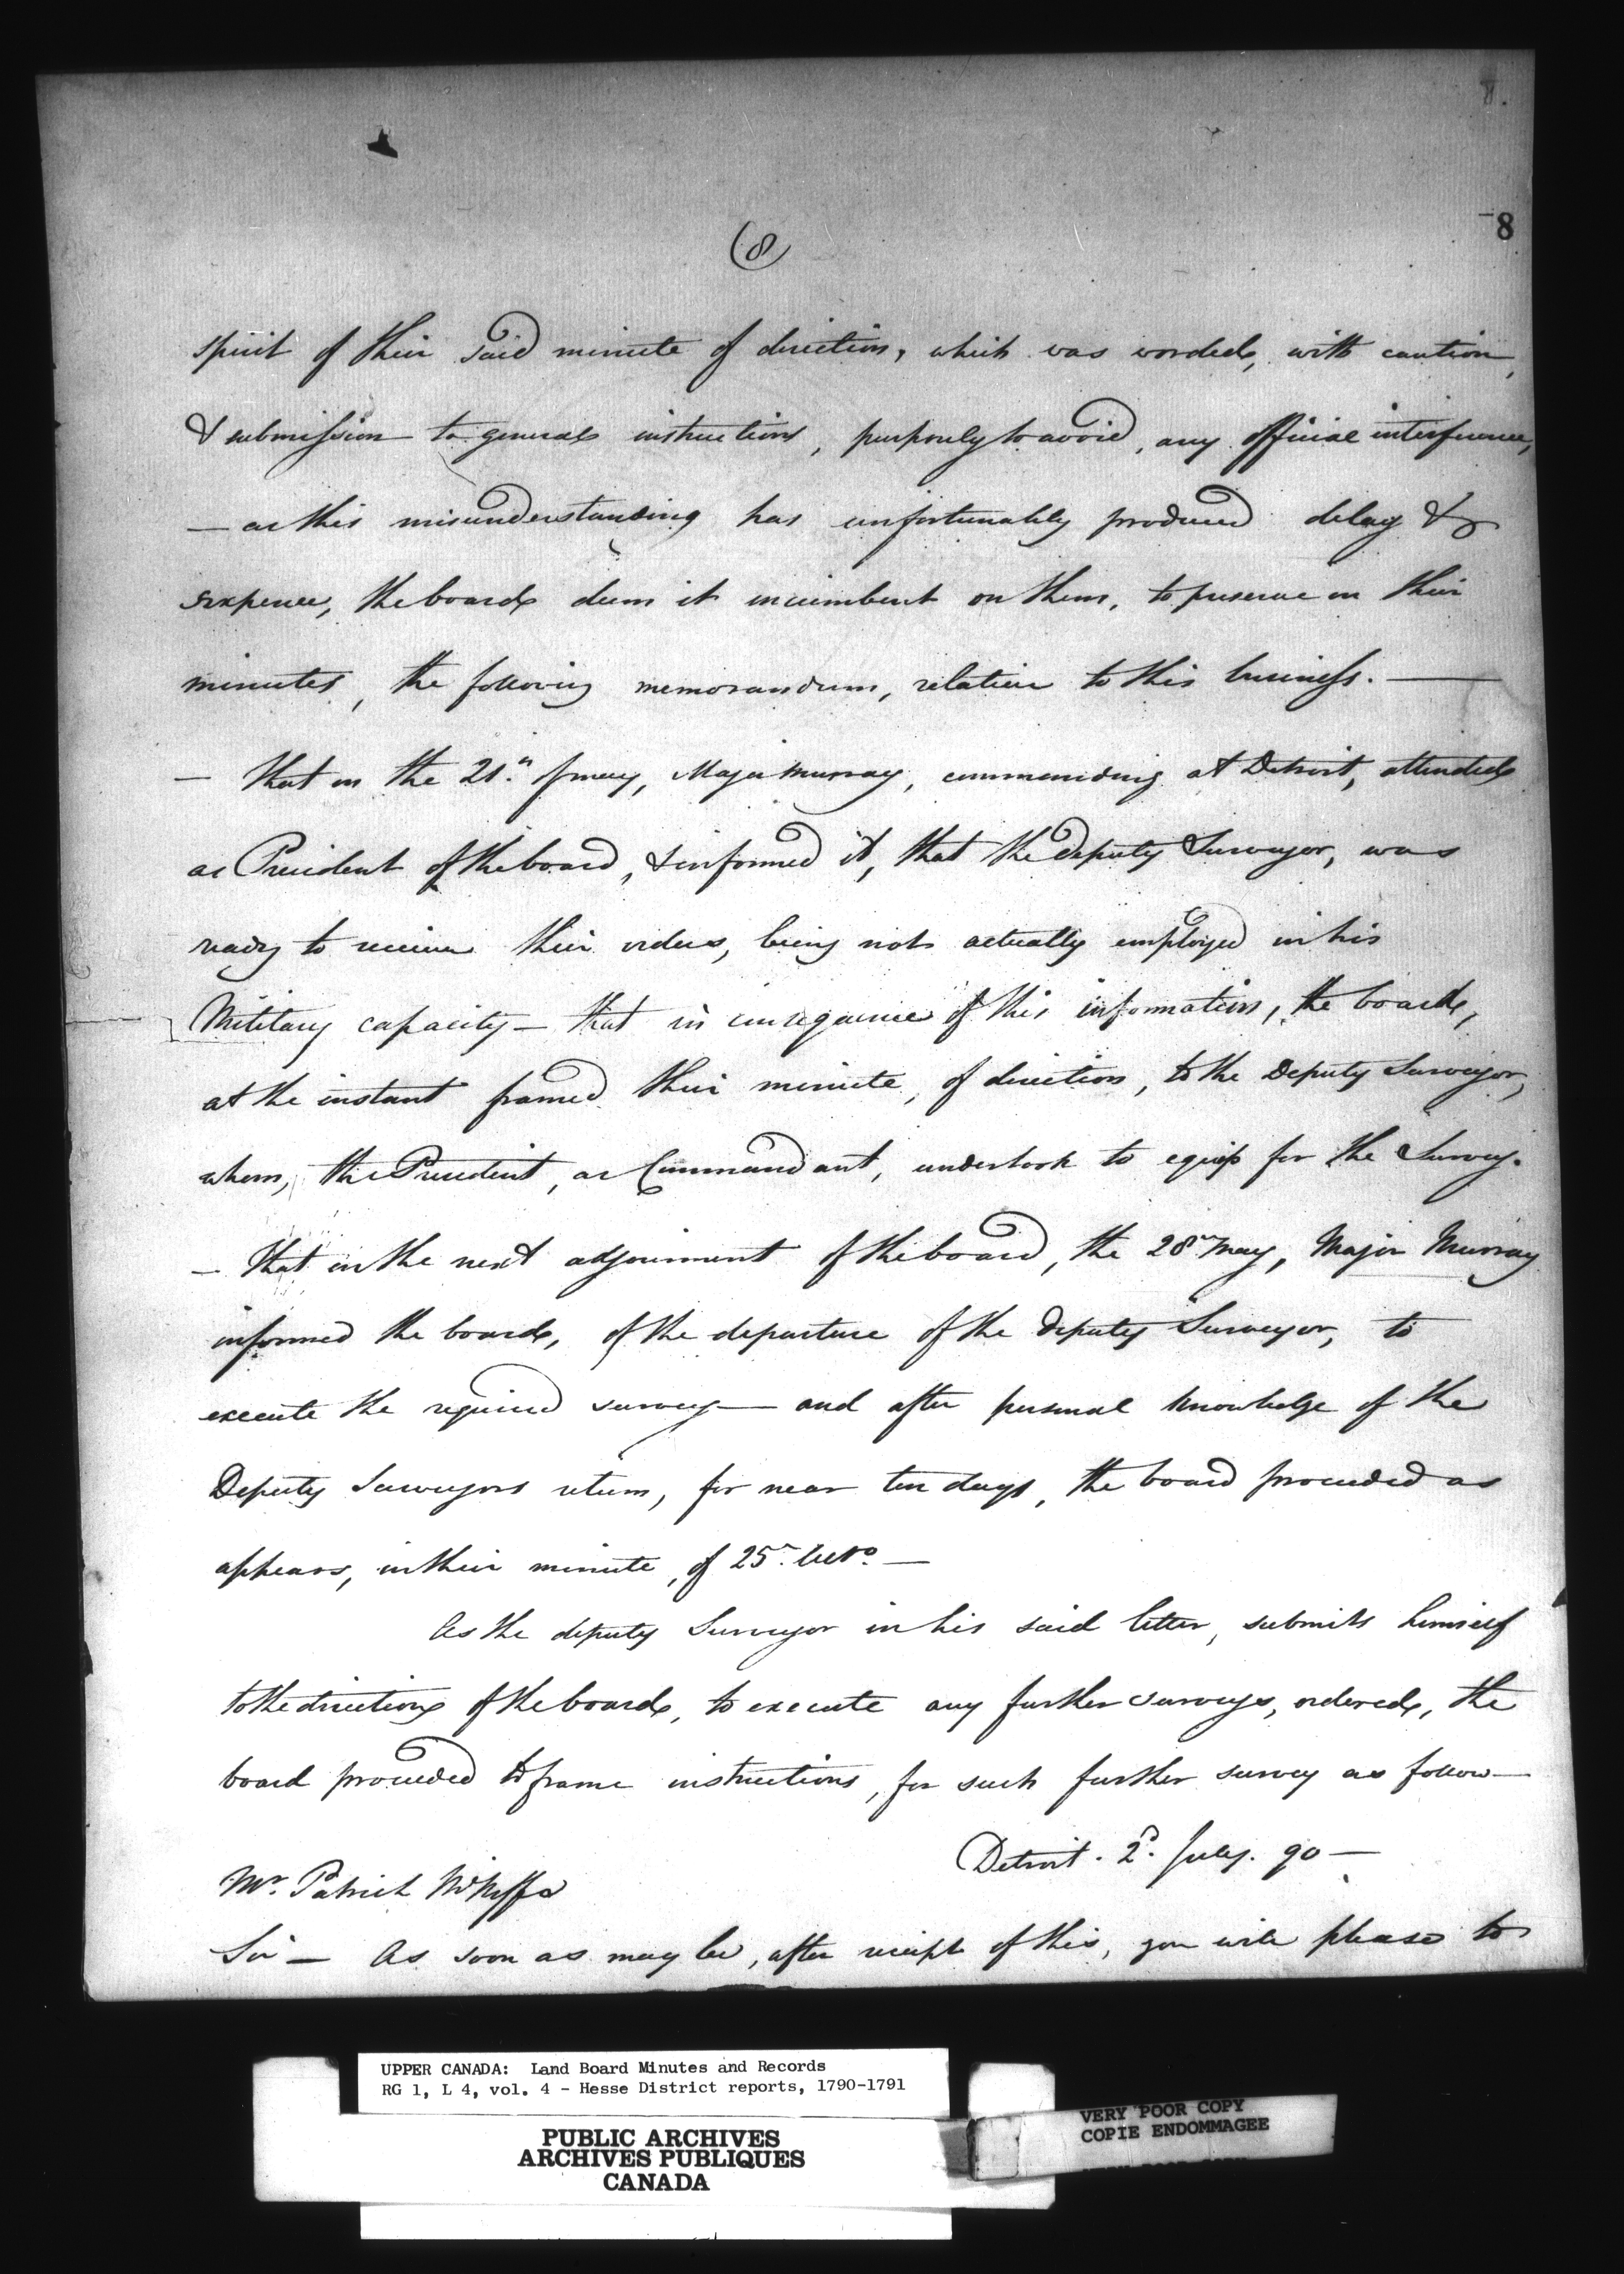 8.
8
(8)
spirit of their said minute of direction, which was worded, with caution,
& submission to general instructions, purposely to avoid, any official interference,
— as this misunderstanding has unfortunately produced delay &
expence, the board deem it incumbent on them, to preserve in their
minutes, the following memorandum, relative to this business. —
— that on the 21.st of may, Major Murray, commanding at Detroit, attended
as President of the board, & informed it, that the deputy Surveyor, was
ready to receive their orders, being not actually employed in his
Military capacity — that in consequence of this information, the board,
at the instant framed their minute, of direction, to the Deputy Surveyor,
whom, the President, as Commandant, undertook to equip for the Survey.
— that in the next adjournment of the board, the 28th may, Major Murray
informed the board, of the departure of the Deputy Surveyor, to
execute the required survey — and after personal knowledge of the
Deputy Surveyors return, for near ten days, the board proceeded as
appears, in their minute, of 25th Ulto. —
As the deputy Surveyor in his said letter, submits himself
to the directions of the board, to execute any further surveys, ordered, the
board proceeded to frame instructions, for such further survey as follow —
Detroit. 2d. July. 90 —
Mr. Patrick McNiff
Sir — As soon as may be, after receipt of this, you will please to
UPPER CANADA: Land Board Minutes and Records
RG 1, L 4, vol. 4 - Hesse District reports, 1790-1791
PUBLIC ARCHIVES
ARCHIVES PUBLIQUES
CANADA
VERY POOR COPY
COPIE ENDOMMAGEE